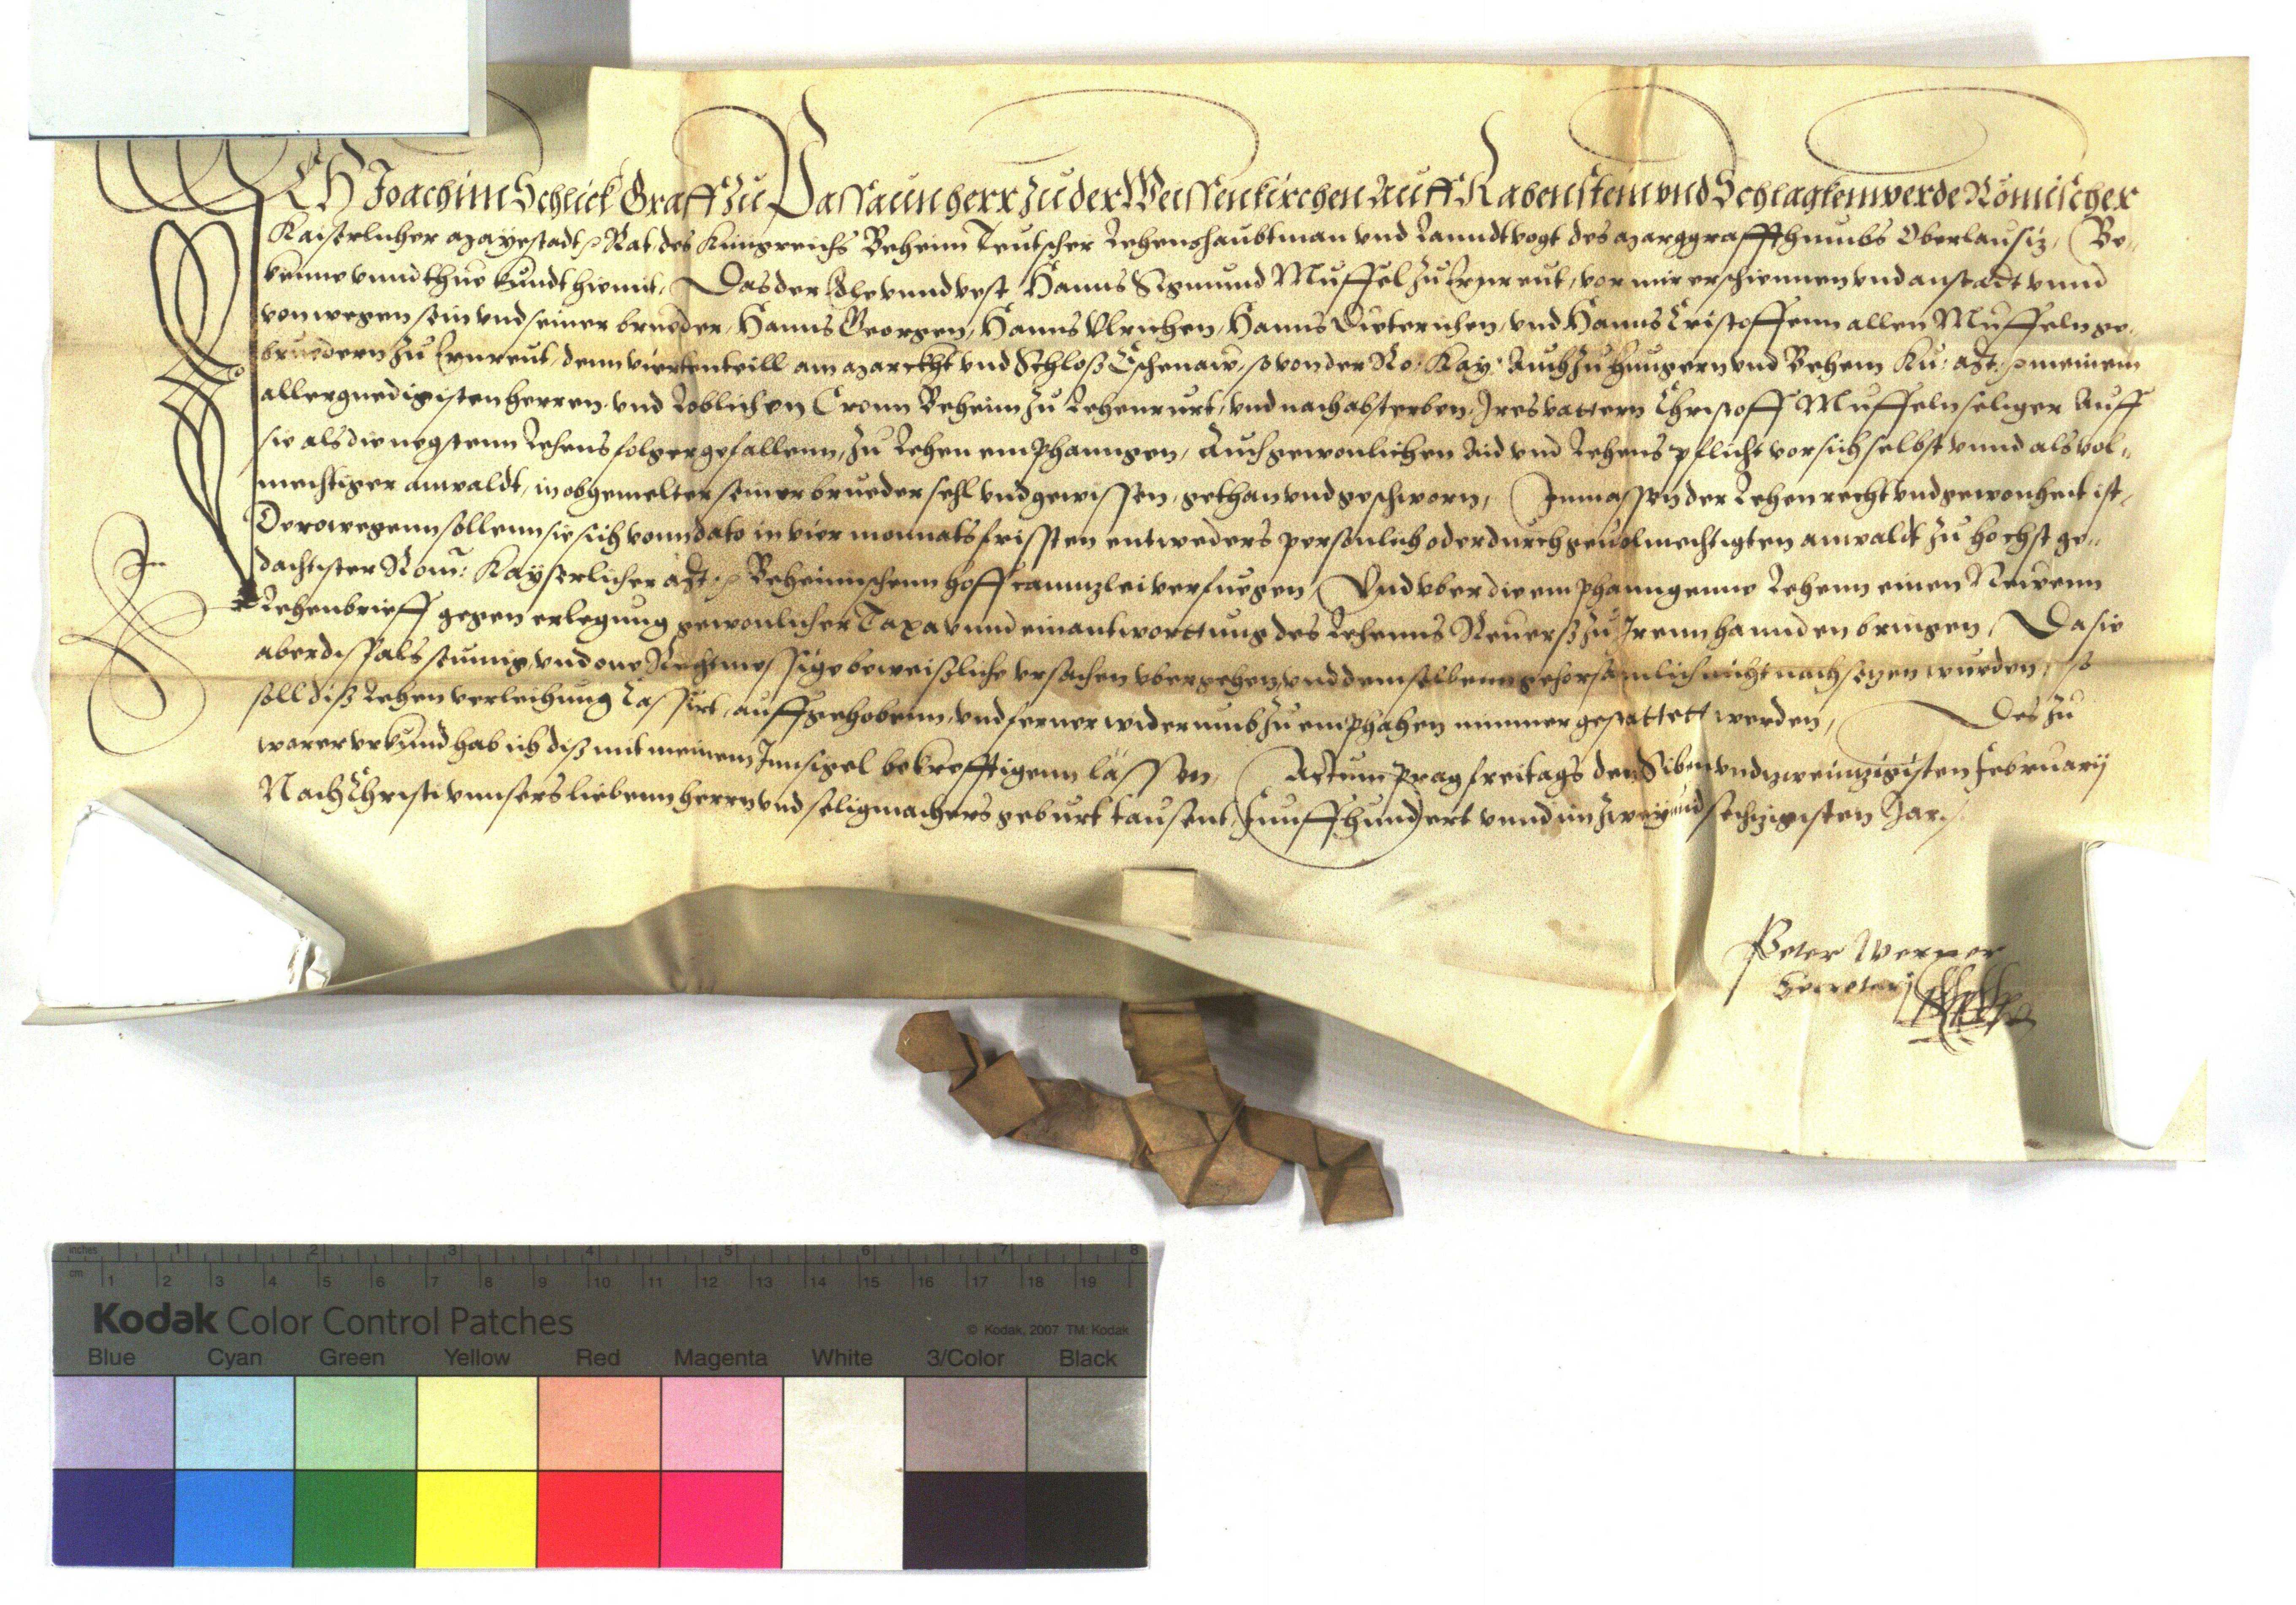 ICH Joachim Schlick Graff zu Passaun herr zu der Weissenkirchen Auff Rabenstein vnd Schlagkenwerde Römischer
Kaiserlicher Mayestadt Rat des Kunigreichs Beheim Teutscher Lehenshaubtman vnd Lanndtvogt des Marggraffthumbs Oberlausiz, Be-
kenne vnnd thue kundt hiemit, Das der Edle vnnd vest Hanns Sigmund Muffel zu Ermreut, vor mir erschiennen vnd anstadt vnnd
von wegen sein vnd seiner brueder, Hanns Georgen, Hanns Vlrichen, Hanns Dieterichen, vnd Hanns Cristoffenn allen Muffeln ge-
bruedern zu Ermreut, denn viertenteill am Marckht vnd Schloß Eschenaw, so von der Ro: Kay: Auch zu Hungern vnd Behem Ku: Mt: meinem
allergnedigisten herren vnd Loblichen Cronn Beheim zu Lehen rurt, vnd nach absterben, Ires vattern Christoff Muffeln seliger Auff
sie als die negstenn Lehens folger gefallenn, zu Lehen emphanngen, Auch gewonlichen Aid vnd Lehens pflicht vor sich selbst vnnd als vol-
mechtiger anwaldt, in obgemelter seiner brueder sehl vnd gewissen, gethan vnd geschworn, Inmassen der Lehen recht vnd gewonheit ist,
Derowegenn sollenn sie sich vonn dato in vier monnats frissten entweders personlich oder durch gevolmechtigten anwaldt zu hochst ge-
dachtister Rom: Kayserlicher Mt: Beheimischenn hoff canntzlei verfuegen, Vnd vber die emphanngenne Lehenn einen Newenn
Lehenbrieff gegen erlegung gewonlicher Taxa vnnd einantworttung des Lehenns Reuerß zu Irenn hannden bringen, Da sie
aber dißfals seumig, vnd one Rechtmessige beweißliche vrsachen vbergehen, vnd demselbenn gehorsamlich nicht nachsezen wurden, so
soll diß Lehen verleihung Cassirt, auffgehobenn, vnd ferner widerumb zu emphahen nimmer gestattett werden, Des zu
warer vrkund hab ich diß mit meinem Innsigel bekrefftigenn lassen, Actum Prag freitags den Siben vnd zweinzigisten February
Nach Christi vnnsers liebenn herrn vnd seligmachers geburt tausent, Funffhundert vnnd im zwey vnd sechzigisten Jar.
Peter Werner
Secretari
inches 1 2 3 4 5 6 7 8
cm 1 2 3 4 5 6 7 8 9 10 11 12 13 14 15 16 17 18 19
Kodak Color Control Patches
© Kodak, 2007 TM: Kodak
Blue Cyan Green Yellow Red Magenta White 3/Color Black